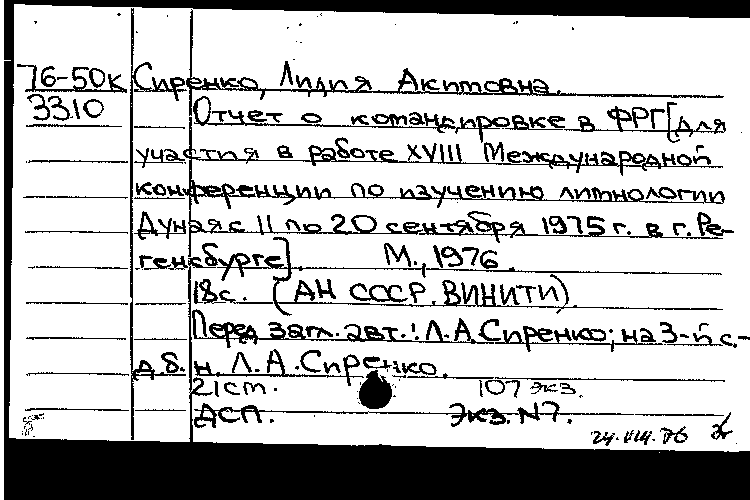 76-50к Сиренко, Лидия Акимовна.
3310 Отчет о командировке в ФРГ [для
участия в работе XVIII Международной
конференции по изучению лимнологии
Дуная с 11 по 20 сентября 1975 г. в г. Ре-
генсбурге]. М., 1976.
18с. (АН СССР. ВИНИТИ).
Перед загл. авт.: Л.А. Сиренко; на 3-й с.-
д.б.н. Л.А. Сиренко.
21 см. 107 экз.
ДСП. Экз. N7.
24.VIII.76